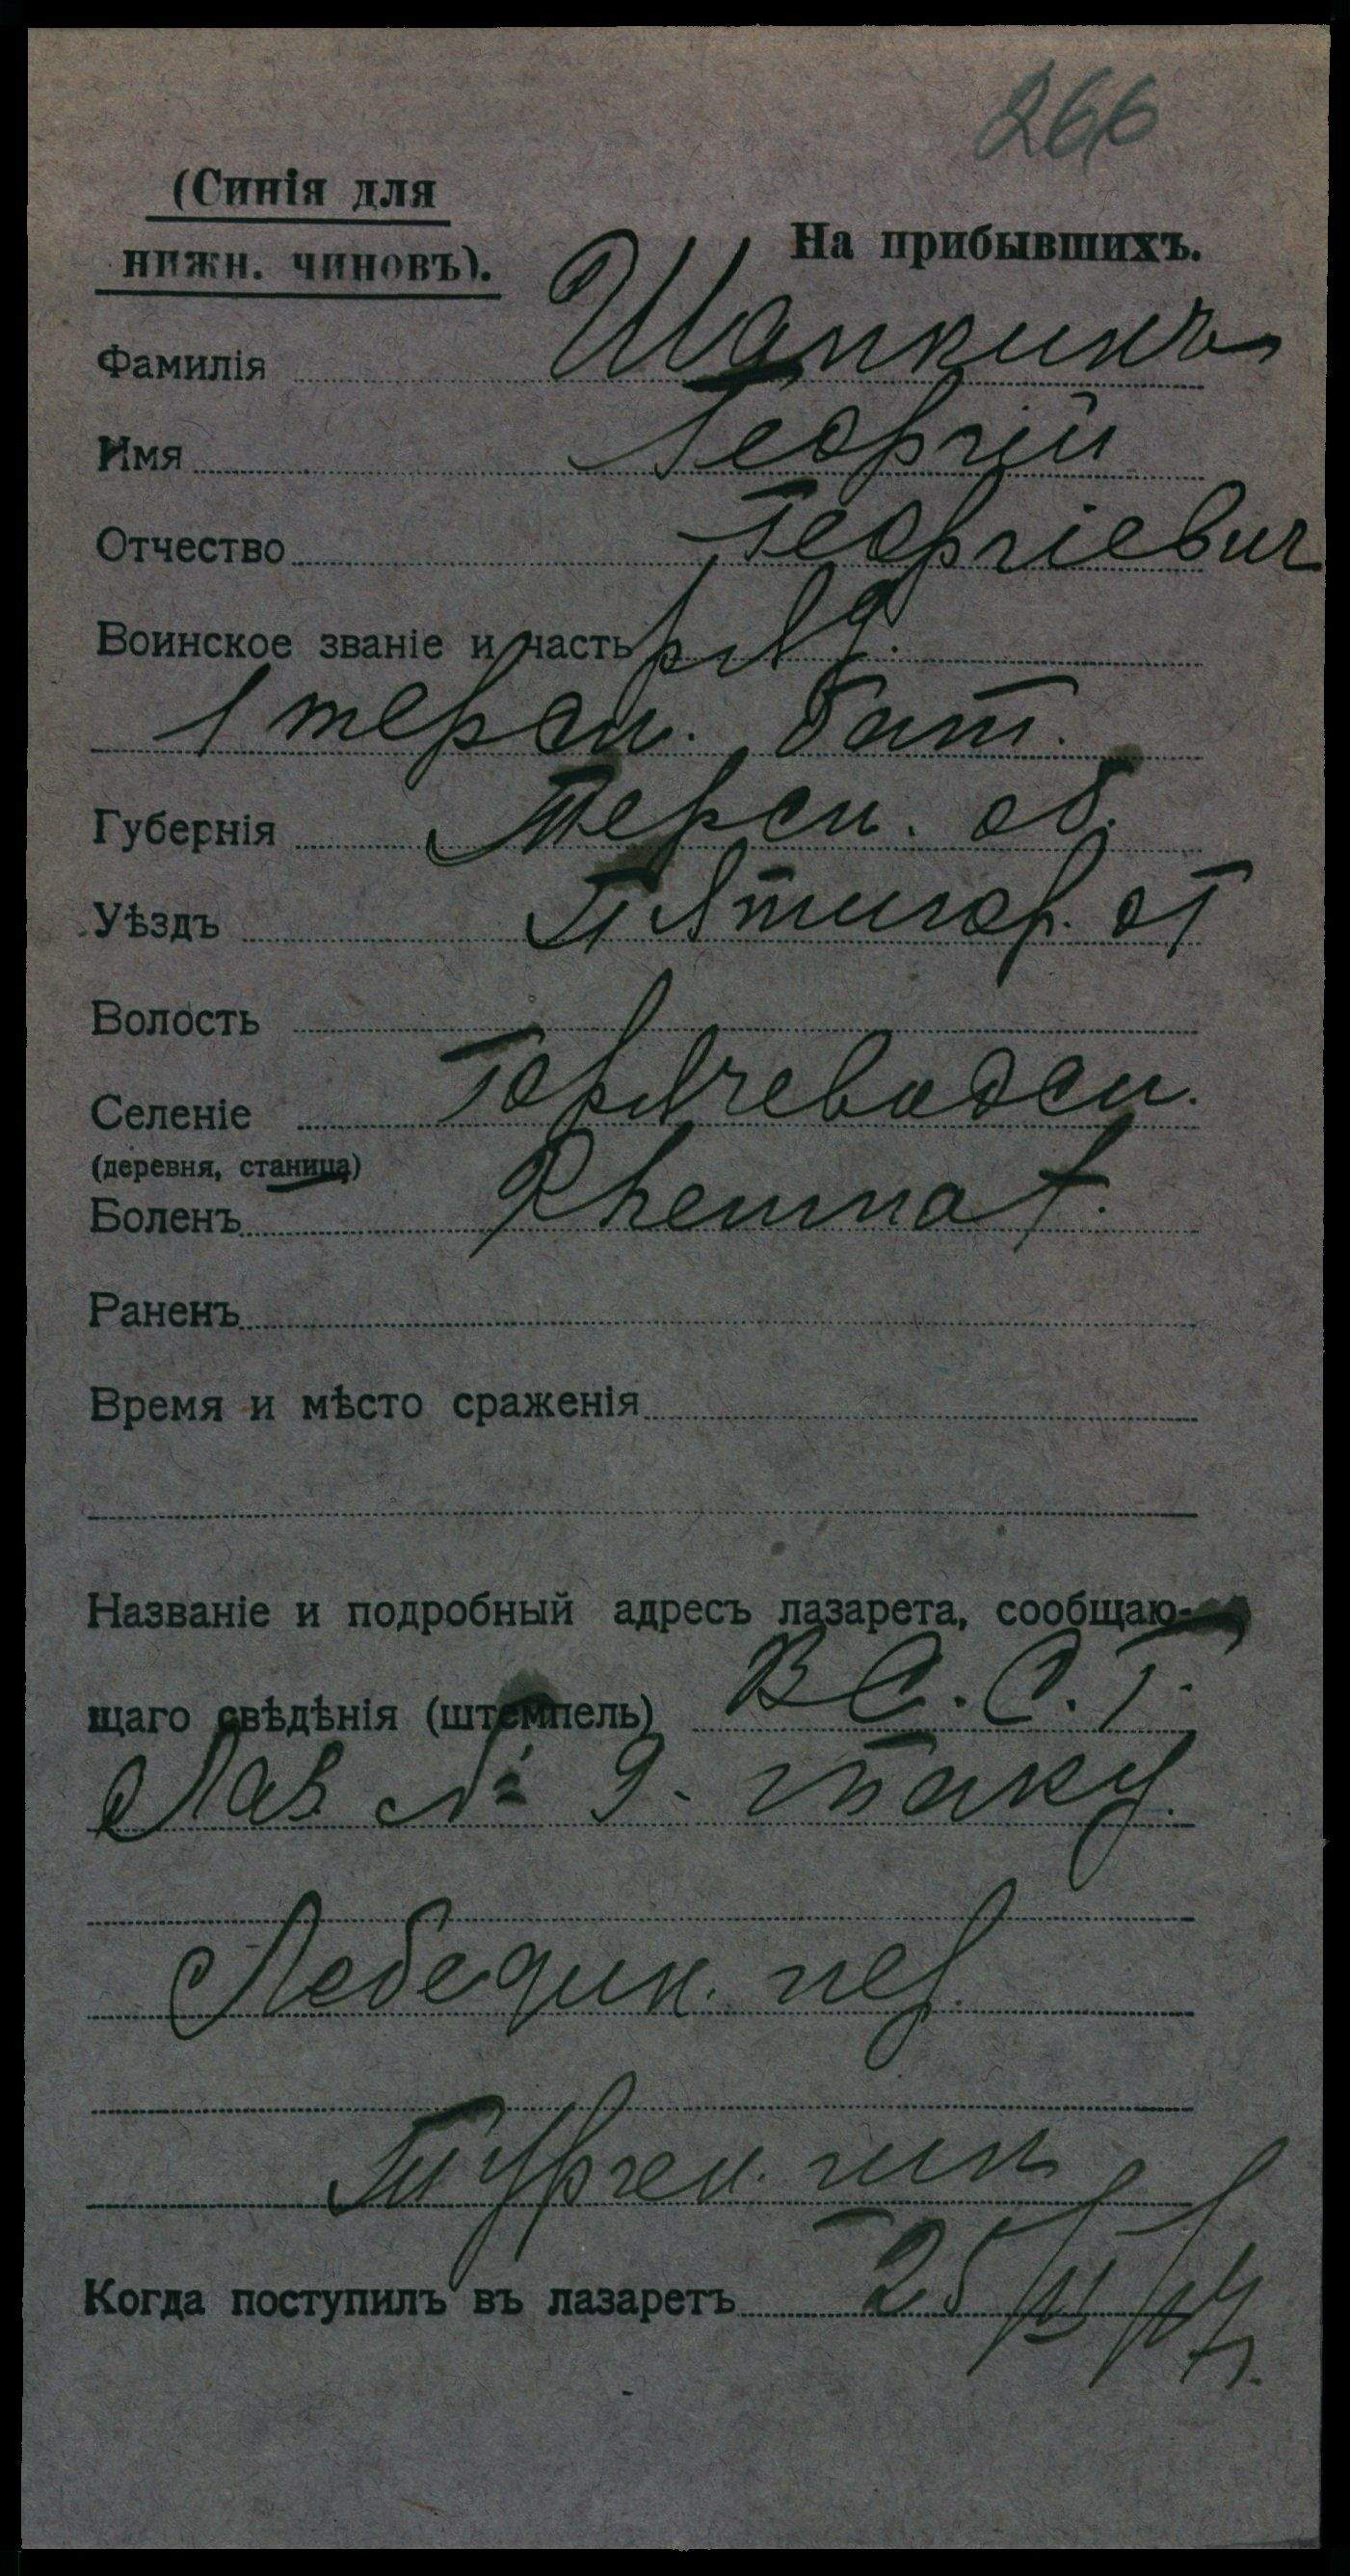 266
(Синія для
нижн. чиновъ).
На прибывшихъ.
Фамилія Шапкинъ
Имя Георгій
Отчество Георгіевич
Воинское званіе и часть ряд.
1 терск. бат.
Губернія Терск. об.
Уѣздъ Пятигор. от
Волость
Селеніе Горячеводск.
(деревня, станица)
Боленъ Rheumat.
Раненъ
Время и мѣсто сраженія
Названіе и подробный адресъ лазарета, сообщаю-
щаго свѣдѣнія (штемпель) В С. С. Г.
Лаз. № 9.
Лебедин. пер.
Турген.
Когда поступилъ въ лазаретъ 25